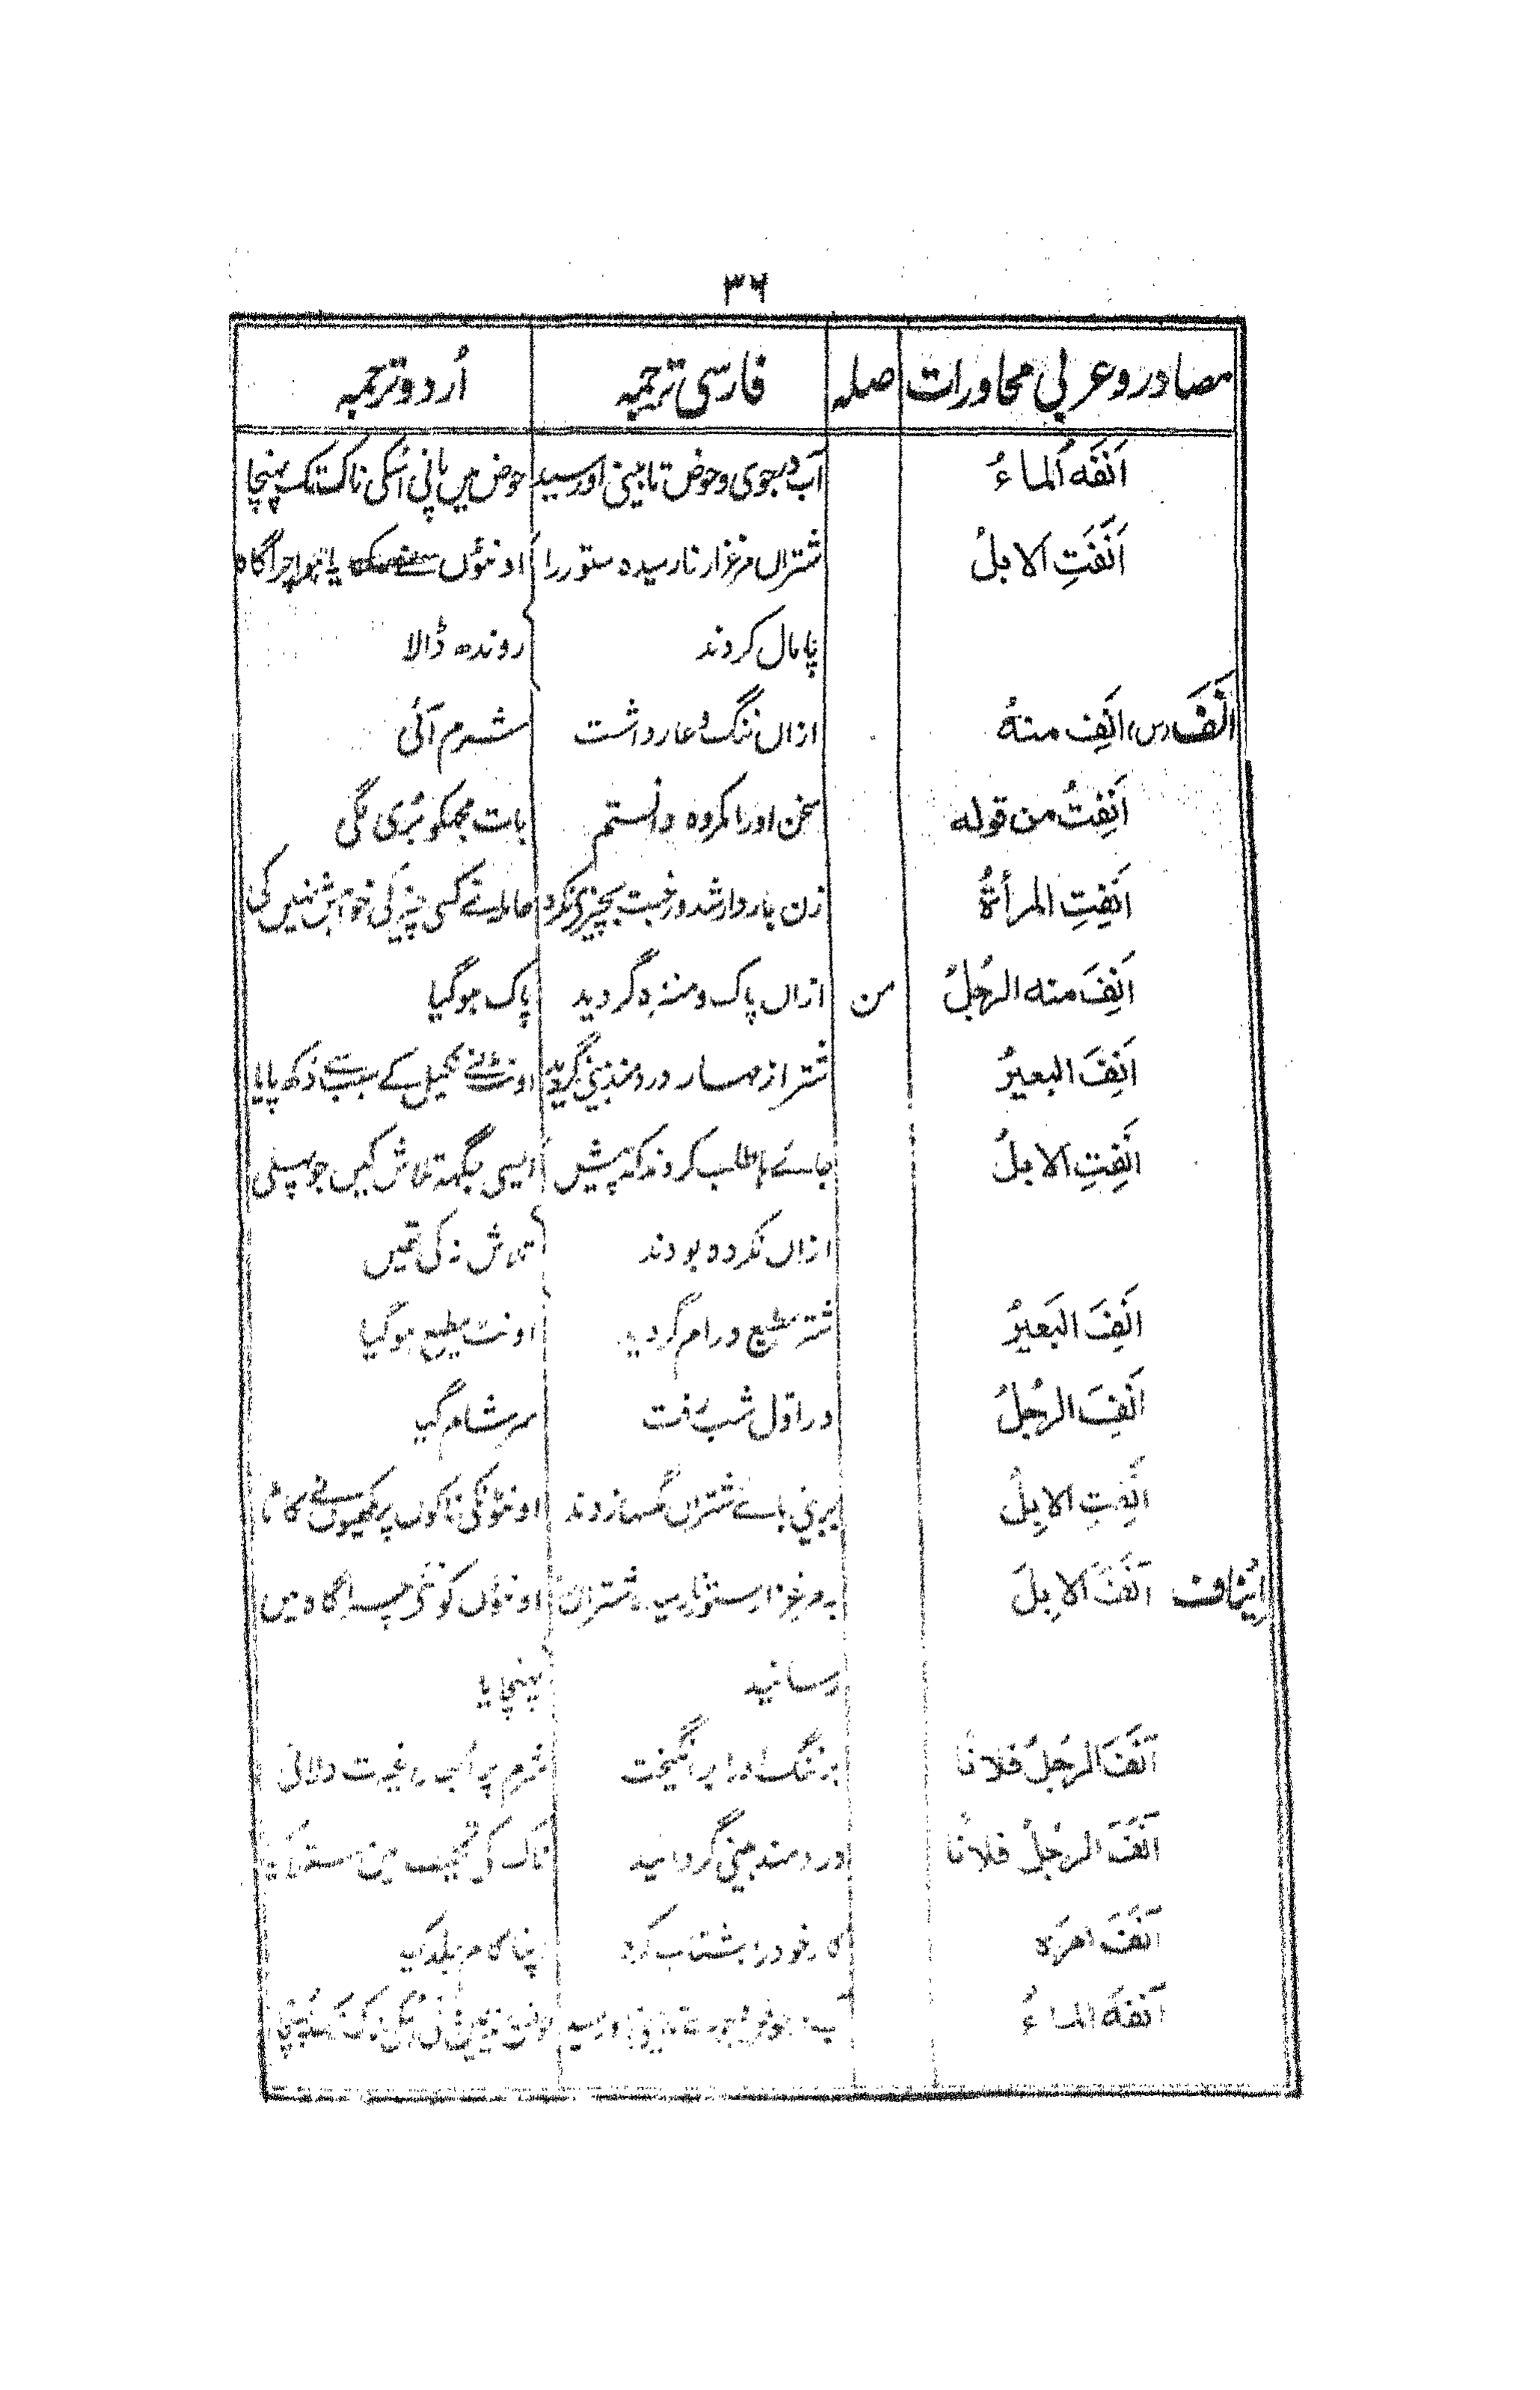 ۳۶
مصادر و عربی محاورات صلہ فارسی ترجمہ اُردو ترجمہ
اَنَفَه اَلماءُ آب در جوی و حوض تا بینی او رسید حوض میں پانی اُسکی ناک تک پہنچا
اَنَفَتِ الابلُ شتراں مرغزار نارسیدہ ستور را اونٹوں نے یا ہوا چراگاہ
پامال کردند روندھ ڈالا
اَنَفَ (س) اَنِفَ منهُ ازاں ننگ و عار داشت شرم آئی
اَنِفتُ من قوله سخن اورا مکروہ دانستم بات مجھکو بُری لگی
اَنِفَتِ المرأۃُ زن باردار شد و رغبت بچیزی نکرد حاملہ نے کسی چیز کی خواہش نہیں کی
اَنِفَ منه الرجُلُ من ازاں پاک و منزہ گردید پاک ہوگیا
اَنِفَ البعیرُ شتر از مہار دردمند بینی گردید اونٹ نے نکیل کے سبب سے دُکھ پایا
اَنِفَتِ الابلُ جائے را طلب کردند کہ پیش ایسی جگہ تلاش کیں جو پہلی
ازاں نکردہ بودند تلاش نہ کی تھیں
اَنِفَ البَعیرُ شتر مطیع و رام گردید اونٹ مطیع ہوگیا
اَنِفَ الرجُلُ در اوّل شب رفت سر شام گیا
اَنِفَتِ الابِلُ بر بینی ہائے شتراں مگسہا زدند اونٹونکی ناکوں پر مکھیوں نے کاٹا
اِیْنَاف آنَفَ الابِلَ بہ مرغزار ستور نارسیدہ شتران اونٹوں کو نئی چراگاہ میں
رسانید پہنچایا
آنَفَ الرجُلُ فلانًا بر ننگ اورا برانگیخت شرم پر غیرت دلائی
آنَفَ الرجُلُ فلانًا دردمند بینی گردانید ناک کی تکلیف میں
آنَفَ امرَہ کار خود را بشتاب کرد اپنا کام جلد کیا
آنَفَهُ الماءُ آب